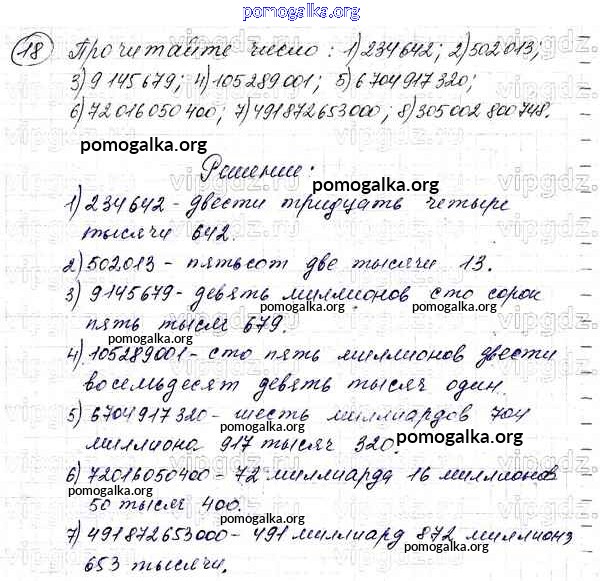 pomogalka.org
18 Прочитайте число: 1) 234642; 2) 502013;
3) 9145679; 4) 105289001; 5) 6704917320;
6) 72016050400; 7) 491872653000; 8) 305002800748.
pomogalka.org
Решение:
pomogalka.org
1) 234642 - двести тридцать четыре
тысячи 642.
pomogalka.org
2) 502013 - пятьсот две тысячи 13.
3) 9145679 - девять миллионов сто сорок
пять тысяч 679.
pomogalka.org
4) 105289001 - сто пять миллионов двести
восемьдесят девять тысяч один.
pomogalka.org
5) 6704917320 - шесть миллиардов 704
миллиона 917 тысяч 320.
pomogalka.org
6) 72016050400 - 72 миллиарда 16 миллионов
pomogalka.org
50 тысяч 400.
pomogalka.org
7) 491872653000 - 491 миллиард 872 миллиона
653 тысячи.
pomogalka.org